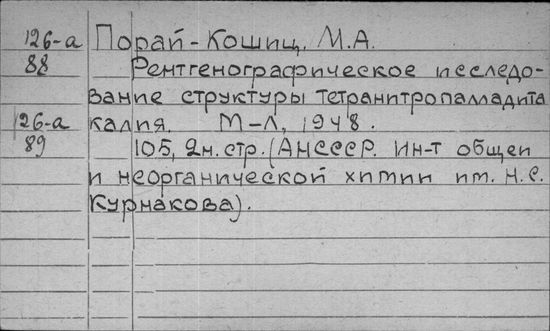 126-а Порай-Кошиц, М.А.
88 Рентгенографическое исследо-
вание структуры тетранитропалладита
126-а калия. М-Л, 1948.
89 105, 2н.стр. (АНСССР. Ин-т общей
и неорганической химии им. Н.С.
Курнакова).